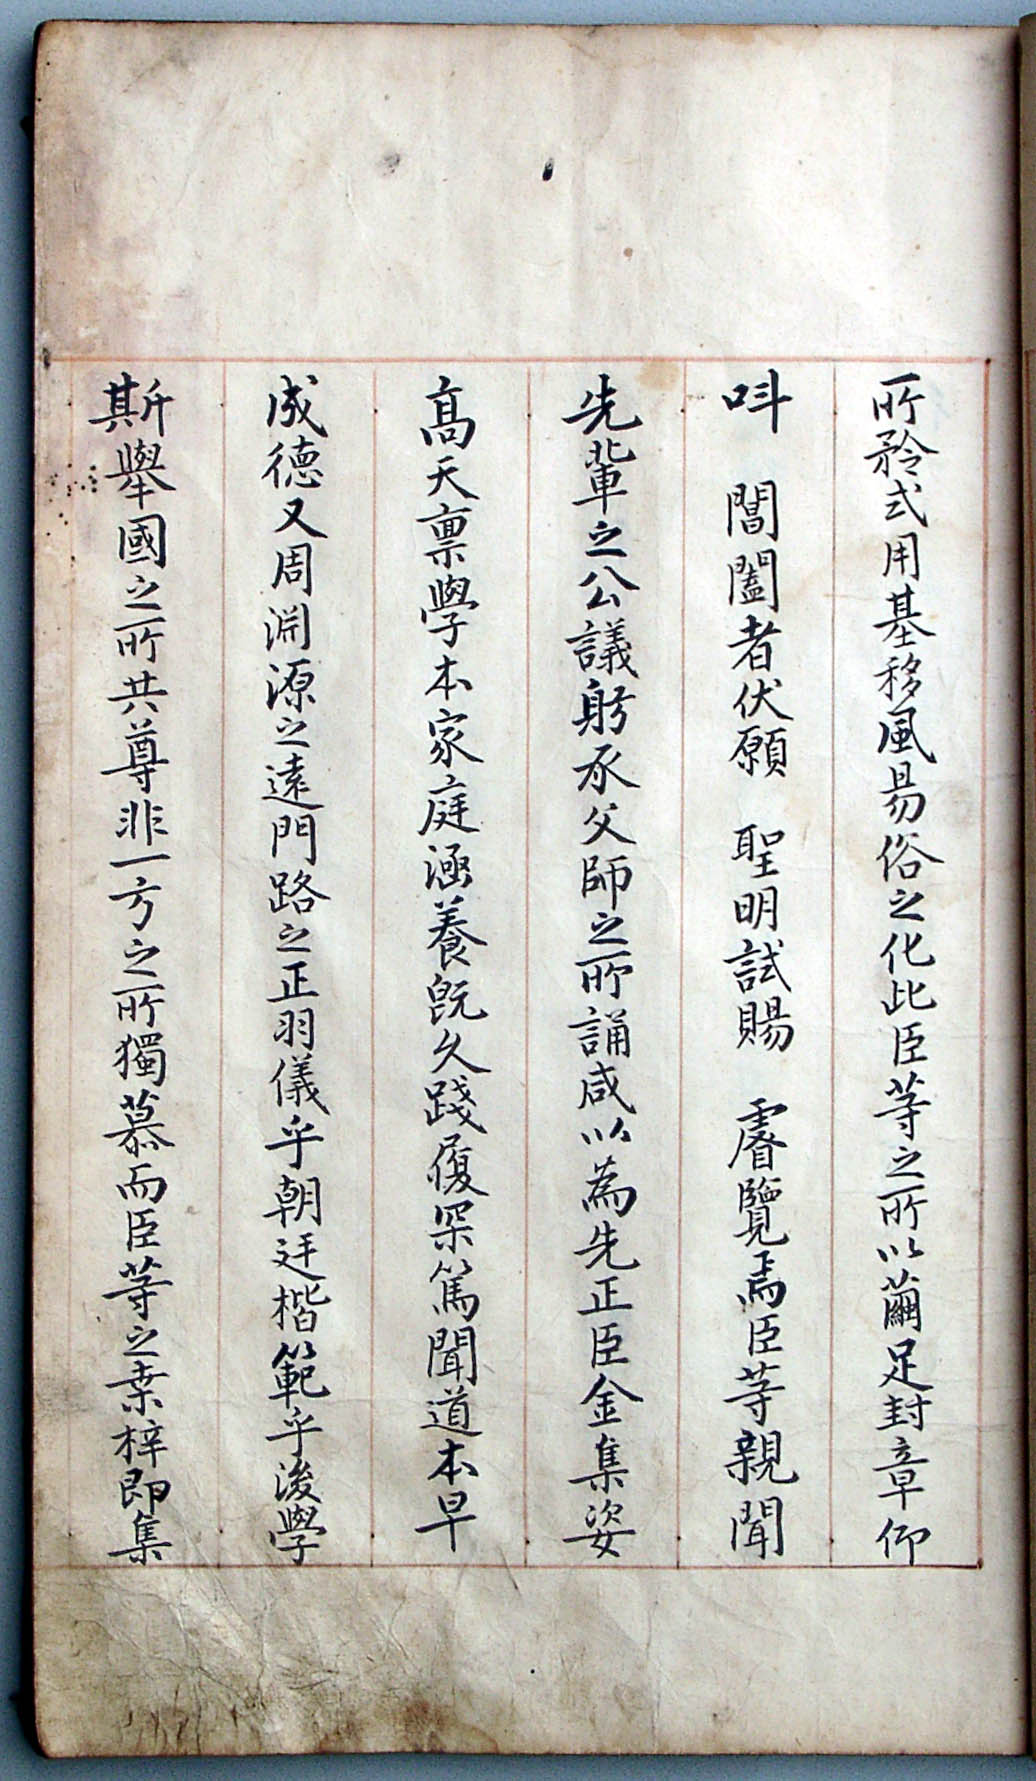 所矜式用基移風易俗之化此臣等之所以繭足封章仰
呌 閶闔者伏願 聖明試賜 睿覽焉臣等親聞
先輩之公議躬承父師之所誦咸以為先正臣金集姿
高天稟學本家庭涵養旣久踐履采篤聞道本早
成德又周淵源之遠門路之正羽儀乎朝廷楷範乎後學
斯舉國之所共尊非一方之所獨慕而臣等之桒梓即集